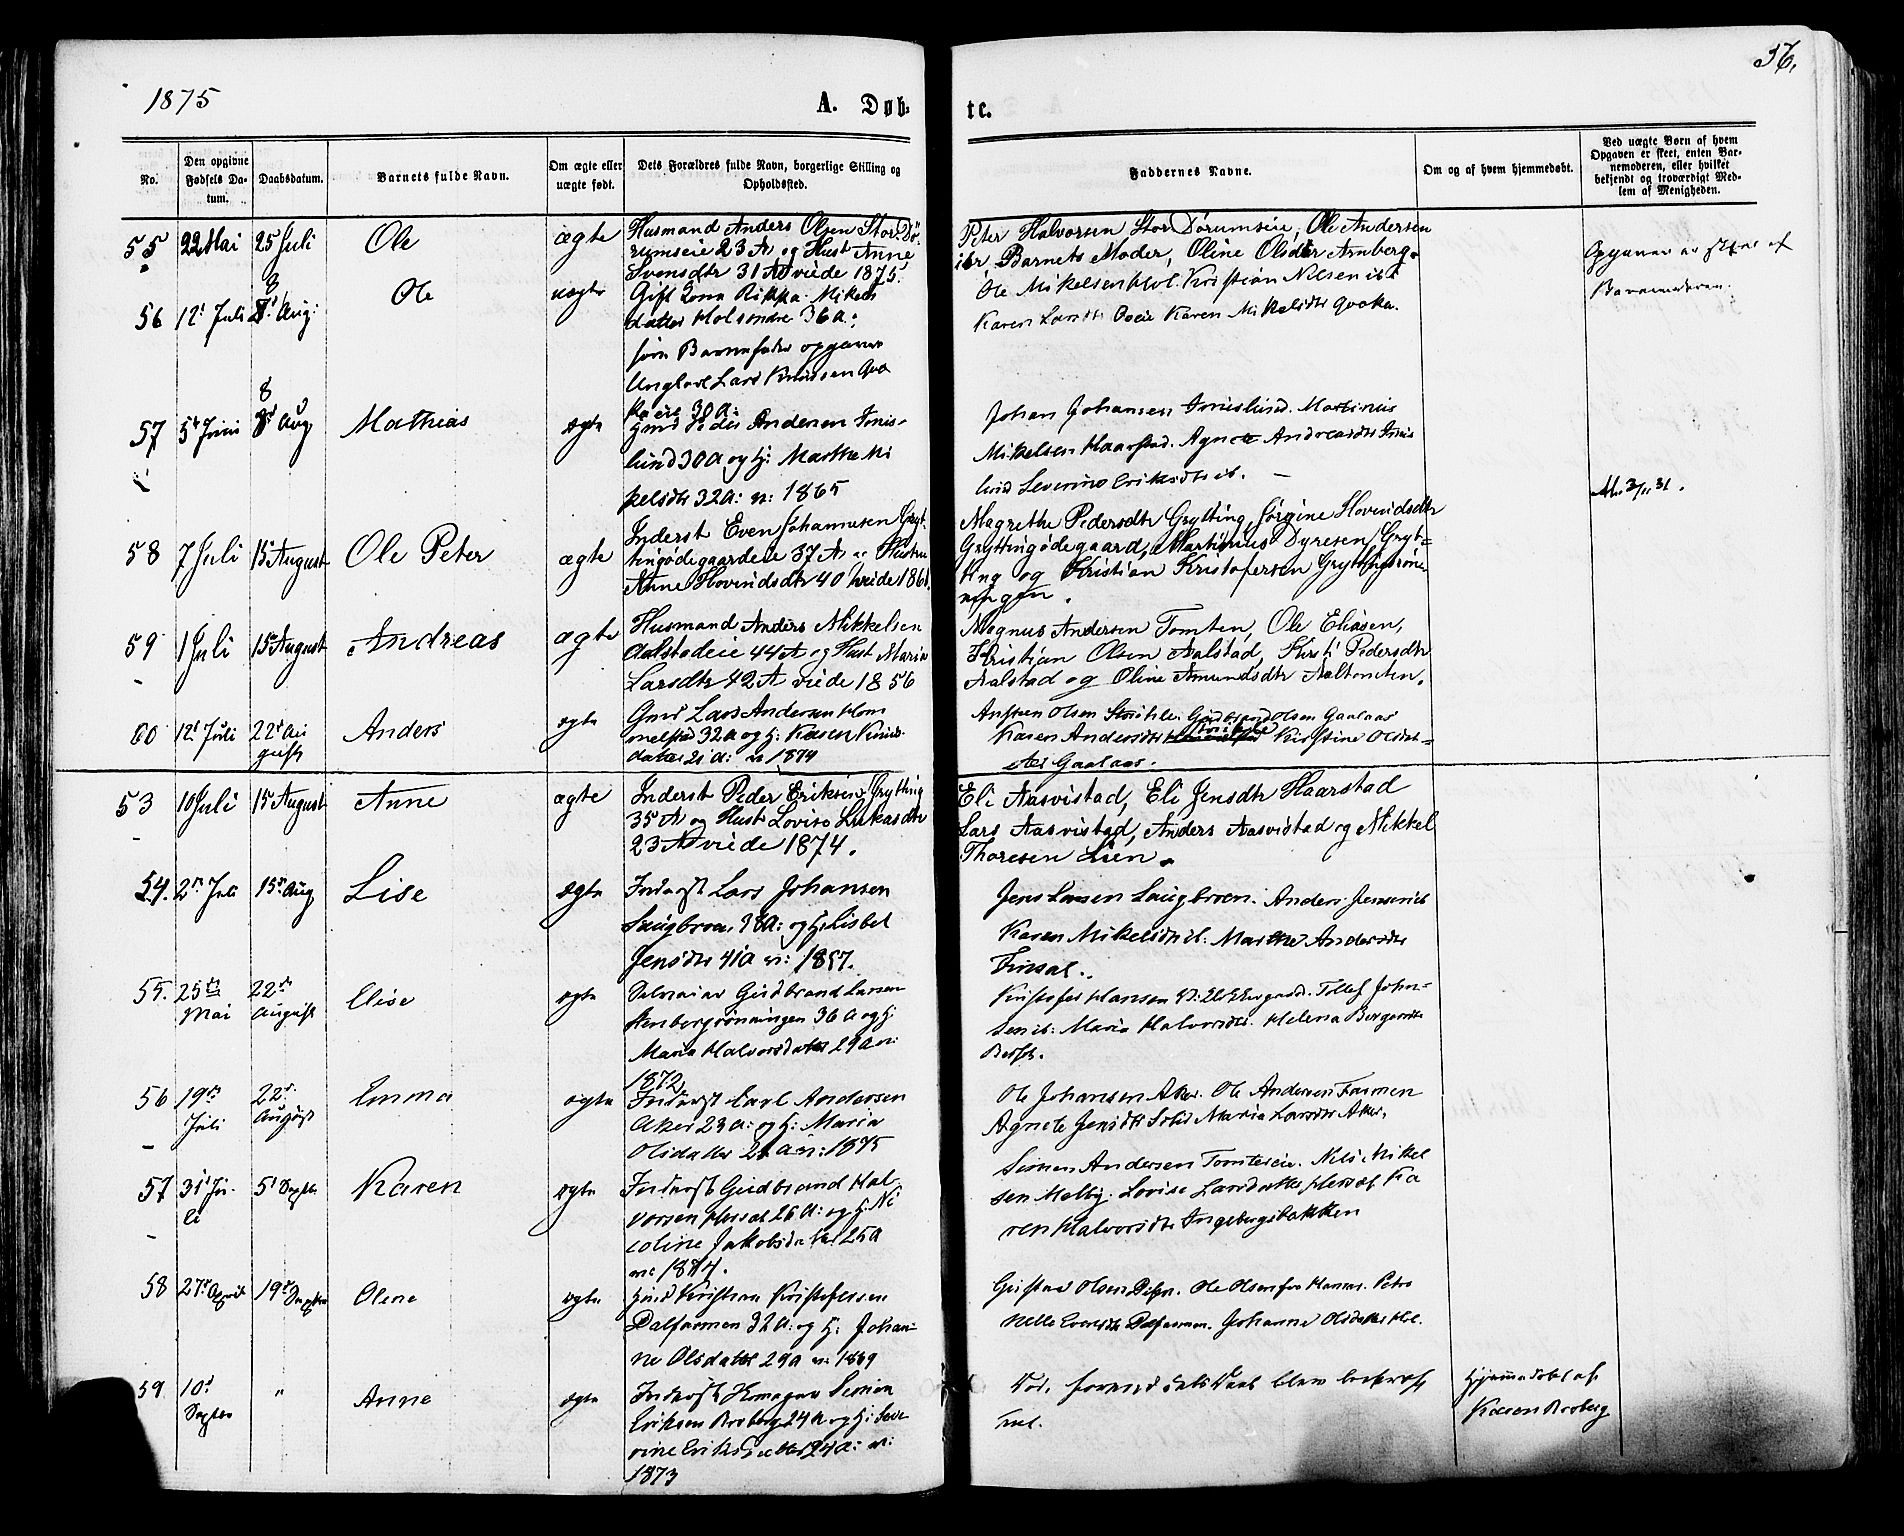 1875
A. Døb-
te.
56.
No.
Den opgivne Fødsels Datum.
Daabsdatum.
Barnets fulde Navn.
Om ægte eller uægte født.
Dets Forældres fulde Navn, borgerlige Stilling og Opholdssted.
Faddernes Navne.
Om og af hvem hjemmedøbt.
Ved uægte Børn af hvem Opgaven er skeet, enten Barnemoderen, eller hvilket bekjendt og troværdigt Medlem af Menigheden.
55 22 Mai 25 Juli Ole ægte
Husmand Anders Olsen Stor Dø-
rumseie 23 A og Hust Anne
Svensdtr 31 A viede 1875.
Peter Halvorsen Stor Dørumseie, Ole Andersen
ibr Barnets Moder, Oline Olsdtr Arnberg.
56 12t Juli 8 Aug: Ole uægte
Gift Kone Rikka Mikels
datter Holsøndre 36 a:
Barnefader opgaves
Ungkarl Lars Knudsen
30 a:
Ole Mikelsen Hol. Kristian Nilsen ib.
Karen Larsdtr Karen Mikelsdtr
Opgaven er skeet af
Barnemoderen.
57 5t Juni 8 Aug Mathias ægte
Gmd Peder Andersen Imis-
lund 30 A og H: Marthe Mi
kelsdtr 32 A: v: 1865
Johan Johansen Imislund. Martinus
Mikelsen Haarstad. Agnete Andreasdtr Imis
lund Severine Eriksdtr ib. —
58 7 Juli 15 August Ole Peter ægte
Inderst Even Johannesen Gryt-
tingødegaardeie 37 A og Hustru
Anne Hovindsdtr 40 viede 1861.
Magrethe Pedersdtr Grytting Jørgine Hovindsdtr
Gryttingødegaard, Martinus Dyresen Gryt=
ting og Kristian Kristofersen Gryttingrøn-
ningen.
59 1 Juli 15 August Andreas ægte
Husmand Anders Mikkelsen
Aalstadeie 44 A og Hust Maria
Larsdtr 42 A viede 1856
Magnus Andersen Tomten, Ole Eliasen,
Kristian Olsen Aalstad, Kirsti Pedersdtr
Aalstad og Oline Amundsdtr Aaltomten.
60 12t Juli 22d Au
gust
Anders ægte
Gmd Lars Andersen Hom
melstad 32 a og H: Karen Knuds
datter 21 a: v 1874
Olsen Gudbrand Olsen Gaalaas
Karen Andersdtr Kirstine Olsdat=
ter Gaalaas.
53 10 Juli 15 August Anne ægte
Inderst Peder Eriksen Grytting
35 A og Hust Lovise Lukasdtr
23 A viede 1874.
Eli Aasvistad, Eli Jensdtr Haarstad
Lars Aasvistad, Anders Aasvistad og Mikkel
Thoresen Lien.
54. 2den Juli 15d Aug Lise ægte
Inderst Lars Johansen
Laugbroen 38 A: og H: Lisbet
Jensdtr 41 A v: 1857.
Jens Larsen Laugbroen. Anders Jensen ib
Karen Mikelsdtr ib: Marthe Andersdtr
Finsal.
55. 25de
Mai 22de
August Elise ægte
Gudbrand Larsen
Stenbergrønningen 36 A og H:
Maria Halvorsdatter 29 a v:
1872
Kristofer Hansen Tollef John-
sen ib: Maria Halvorsdtr. Helena
56 19de
Juli 22d
August Emma ægte
Inderst Carl Andersen
Aker 23 a: og H: Maria
Olsdatter 21 A v: 1875
Ole Johansen Aker. Ole Andersen Farmen
Agnete Jensdtr Maria Larsdtr Aker.
57 31t Ju-
li 5t Septbr Karen ægte
Inderst Gudbrand Hal-
vorsen Hersal 26 A: og H: Ni
coline Jakobsdatter 25 A
v: 1874.
Simen Andersen Tomteeie. Nils Mikel
sen Melby. Lovise Larsdatter Hersal Ka
ren Halvorsdtr Ingebergsbakken
58 27d April 19d Septbr Olene ægte
Gmd Kristian Kristofersen
Dalfarmen 32 A: og H: Johan-
ne Olsdatter 29 A v: 1869
Gustav Olsen Ole Olsen
Evensdtr Dalfarmen. Johanne Olsdatter Hol.
59 10d
Septbr " Anne ægte
Inderst Simen
Eriksen Broberg 24 A og H: Seve
rine Eriksdatter 24 A: v:
1873
forend blev bekræf
tet.
Hjemmedøbt af
Karen Broberg